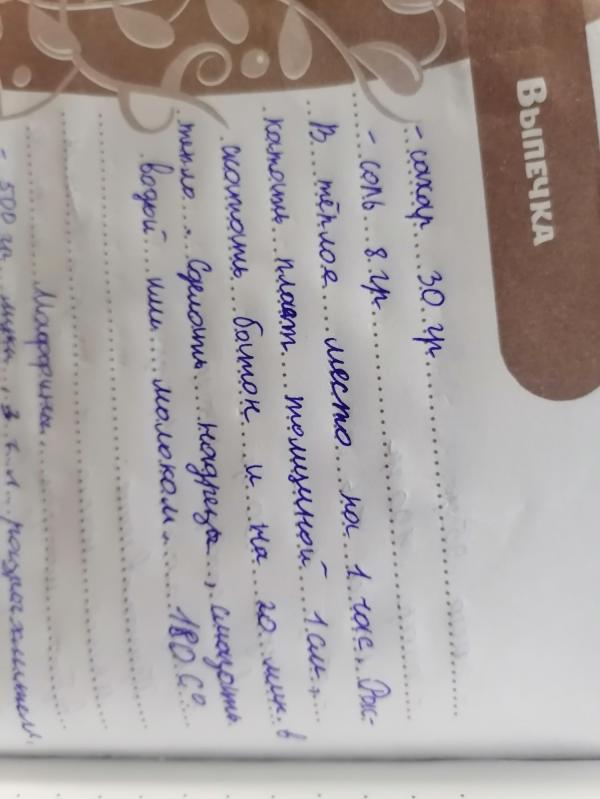 ВЫПЕЧКА
- сахар 30 гр
- соль 8 гр
В тёплое место на 1 час. Рас-
катать пласт толщиной 1 см,
скатать батон и на 20 мин. в
тепло. Сделать надрезы, смазать
водой или молоком. 180 С°
Маффины.
- 500 гр муки, 3 ч.л. разрыхлитель,